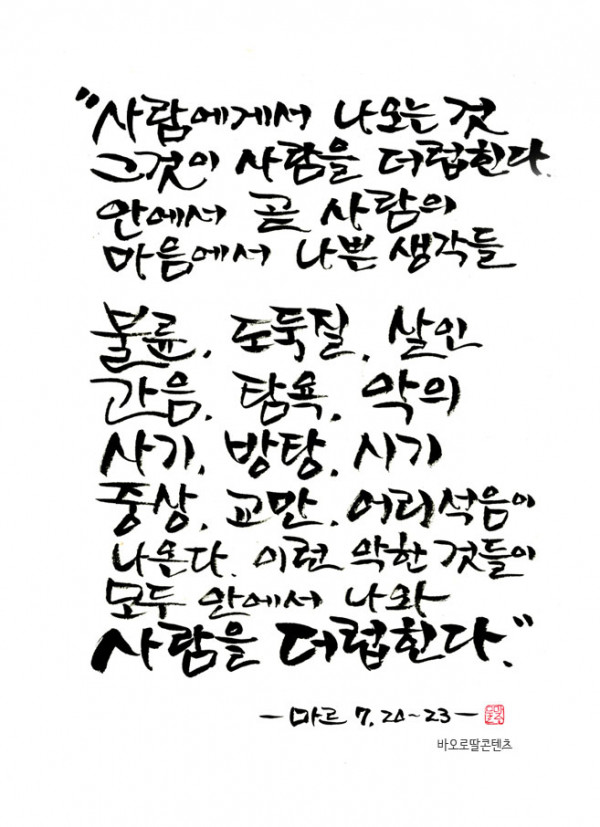 "사람에게서 나오는 것
그것이 사람을 더럽힌다.
안에서 곧 사람의
마음에서 나쁜 생각들
불륜, 도둑질, 살인
간음, 탐욕, 악의
사기, 방탕, 시기
중상, 교만, 어리석음이
나온다. 이런 악한 것들이
모두 안에서 나와
사람을 더럽힌다."
- 마르 7, 20~23 -
바오로딸콘텐츠